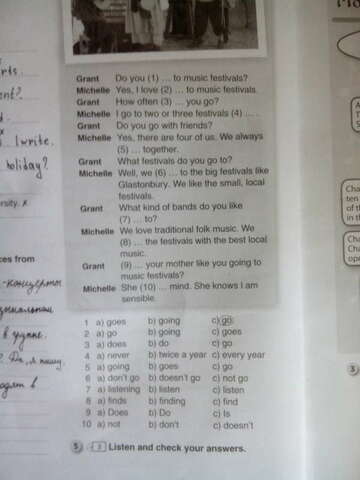 Grant Do you (1) ... to music festivals?
Michelle Yes, I love (2) ... to music festivals.
Grant How often (3) ... you go?
Michelle I go to two or three festivals (4) ... .
Grant Do you go with friends?
Michelle Yes, there are four of us. We always
(5) ... together.
Grant What festivals do you go to?
Michelle Well, we (6) ... to the big festivals like
Glastonbury. We like the small, local
festivals.
Grant What kind of bands do you like
(7) ... to?
Michelle We love traditional folk music. We
(8) ... the festivals with the best local
music.
Grant (9) ... your mother like you going to
music festivals?
Michelle She (10) ... mind. She knows I am
sensible.
1 a) goes b) going c) go
2 a) go b) going c) goes
3 a) does b) do c) go
4 a) never b) twice a year c) every year
5 a) going b) goes c) go
6 a) don't go b) doesn't go c) not go
7 a) listening b) listen c) listen
8 a) finds b) finding c) find
9 a) Does b) Do c) Is
10 a) not b) don't c) doesn't
5 3 Listen and check your answers.
I write.
holiday?
rsity. x
ces from
-концерты
в группе.
Да, я пишу.
3